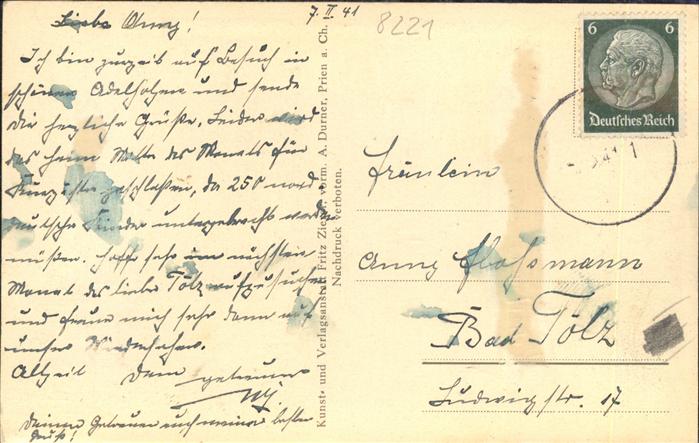 7. II. 41
8221
Liebe Anny!
Ich bin zurzeit auf Besuch in
schönen Adelholzen und sende
Dir herzliche Grüße. Leider wird
das Heim Mitte des Monats für
geschlossen, da 250 nord-
deutsche Kinder untergebracht werden
müssen. Hoffe sehr im nächsten
Monat das liebe Tölz aufzusuchen
und freue mich sehr dann auf
unser Wiedersehen.
Allzeit Dein getreuer
Deinen Getreuen auch meine besten
Grüße!
Kunst- und Verlagsanstalt Fritz vorm. A. Durner, Prien a. Ch.
Nachdruck verboten.
6 6
Deutsches Reich
Fräulein
Anny
Bad Tölz
Ludwigstr. 17